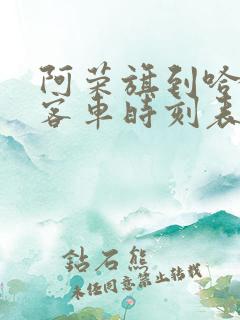 阿荣旗到哈
客车时刻表
钻石熊
未经同意禁止转载